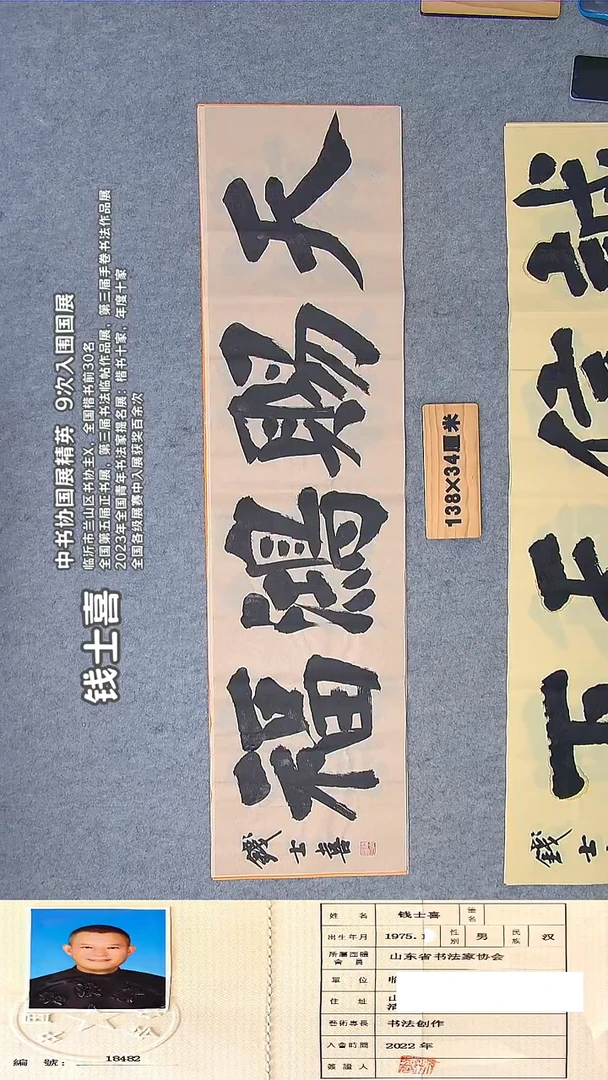 钱士喜
中书协国展精英 9次入围国展
临沂市兰山区书协主X，全国楷书前30名
全国第五届正书展、第三届书法临帖作品展、第三届手卷书法作品展
2023年全国青年书法家提名展：楷书十家，年度十家
全国各级展赛中入展获奖百余次
天賜鴻福
錢士喜
138×34厘米
誠信
下
錢士
編號：18482
姓名 钱士喜 筆名
出生年月 1975. 性別 男 民族 汉
所屬團體會員 山东省书法家协会
單位 临
住址 山
藝術專長 书法创作
入會時間 2022 年
簽證人